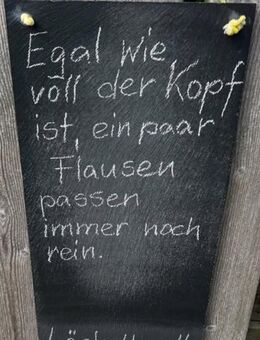 Egal wie
voll der Kopf
ist, ein paar
Flausen
passen
immer noch
rein.